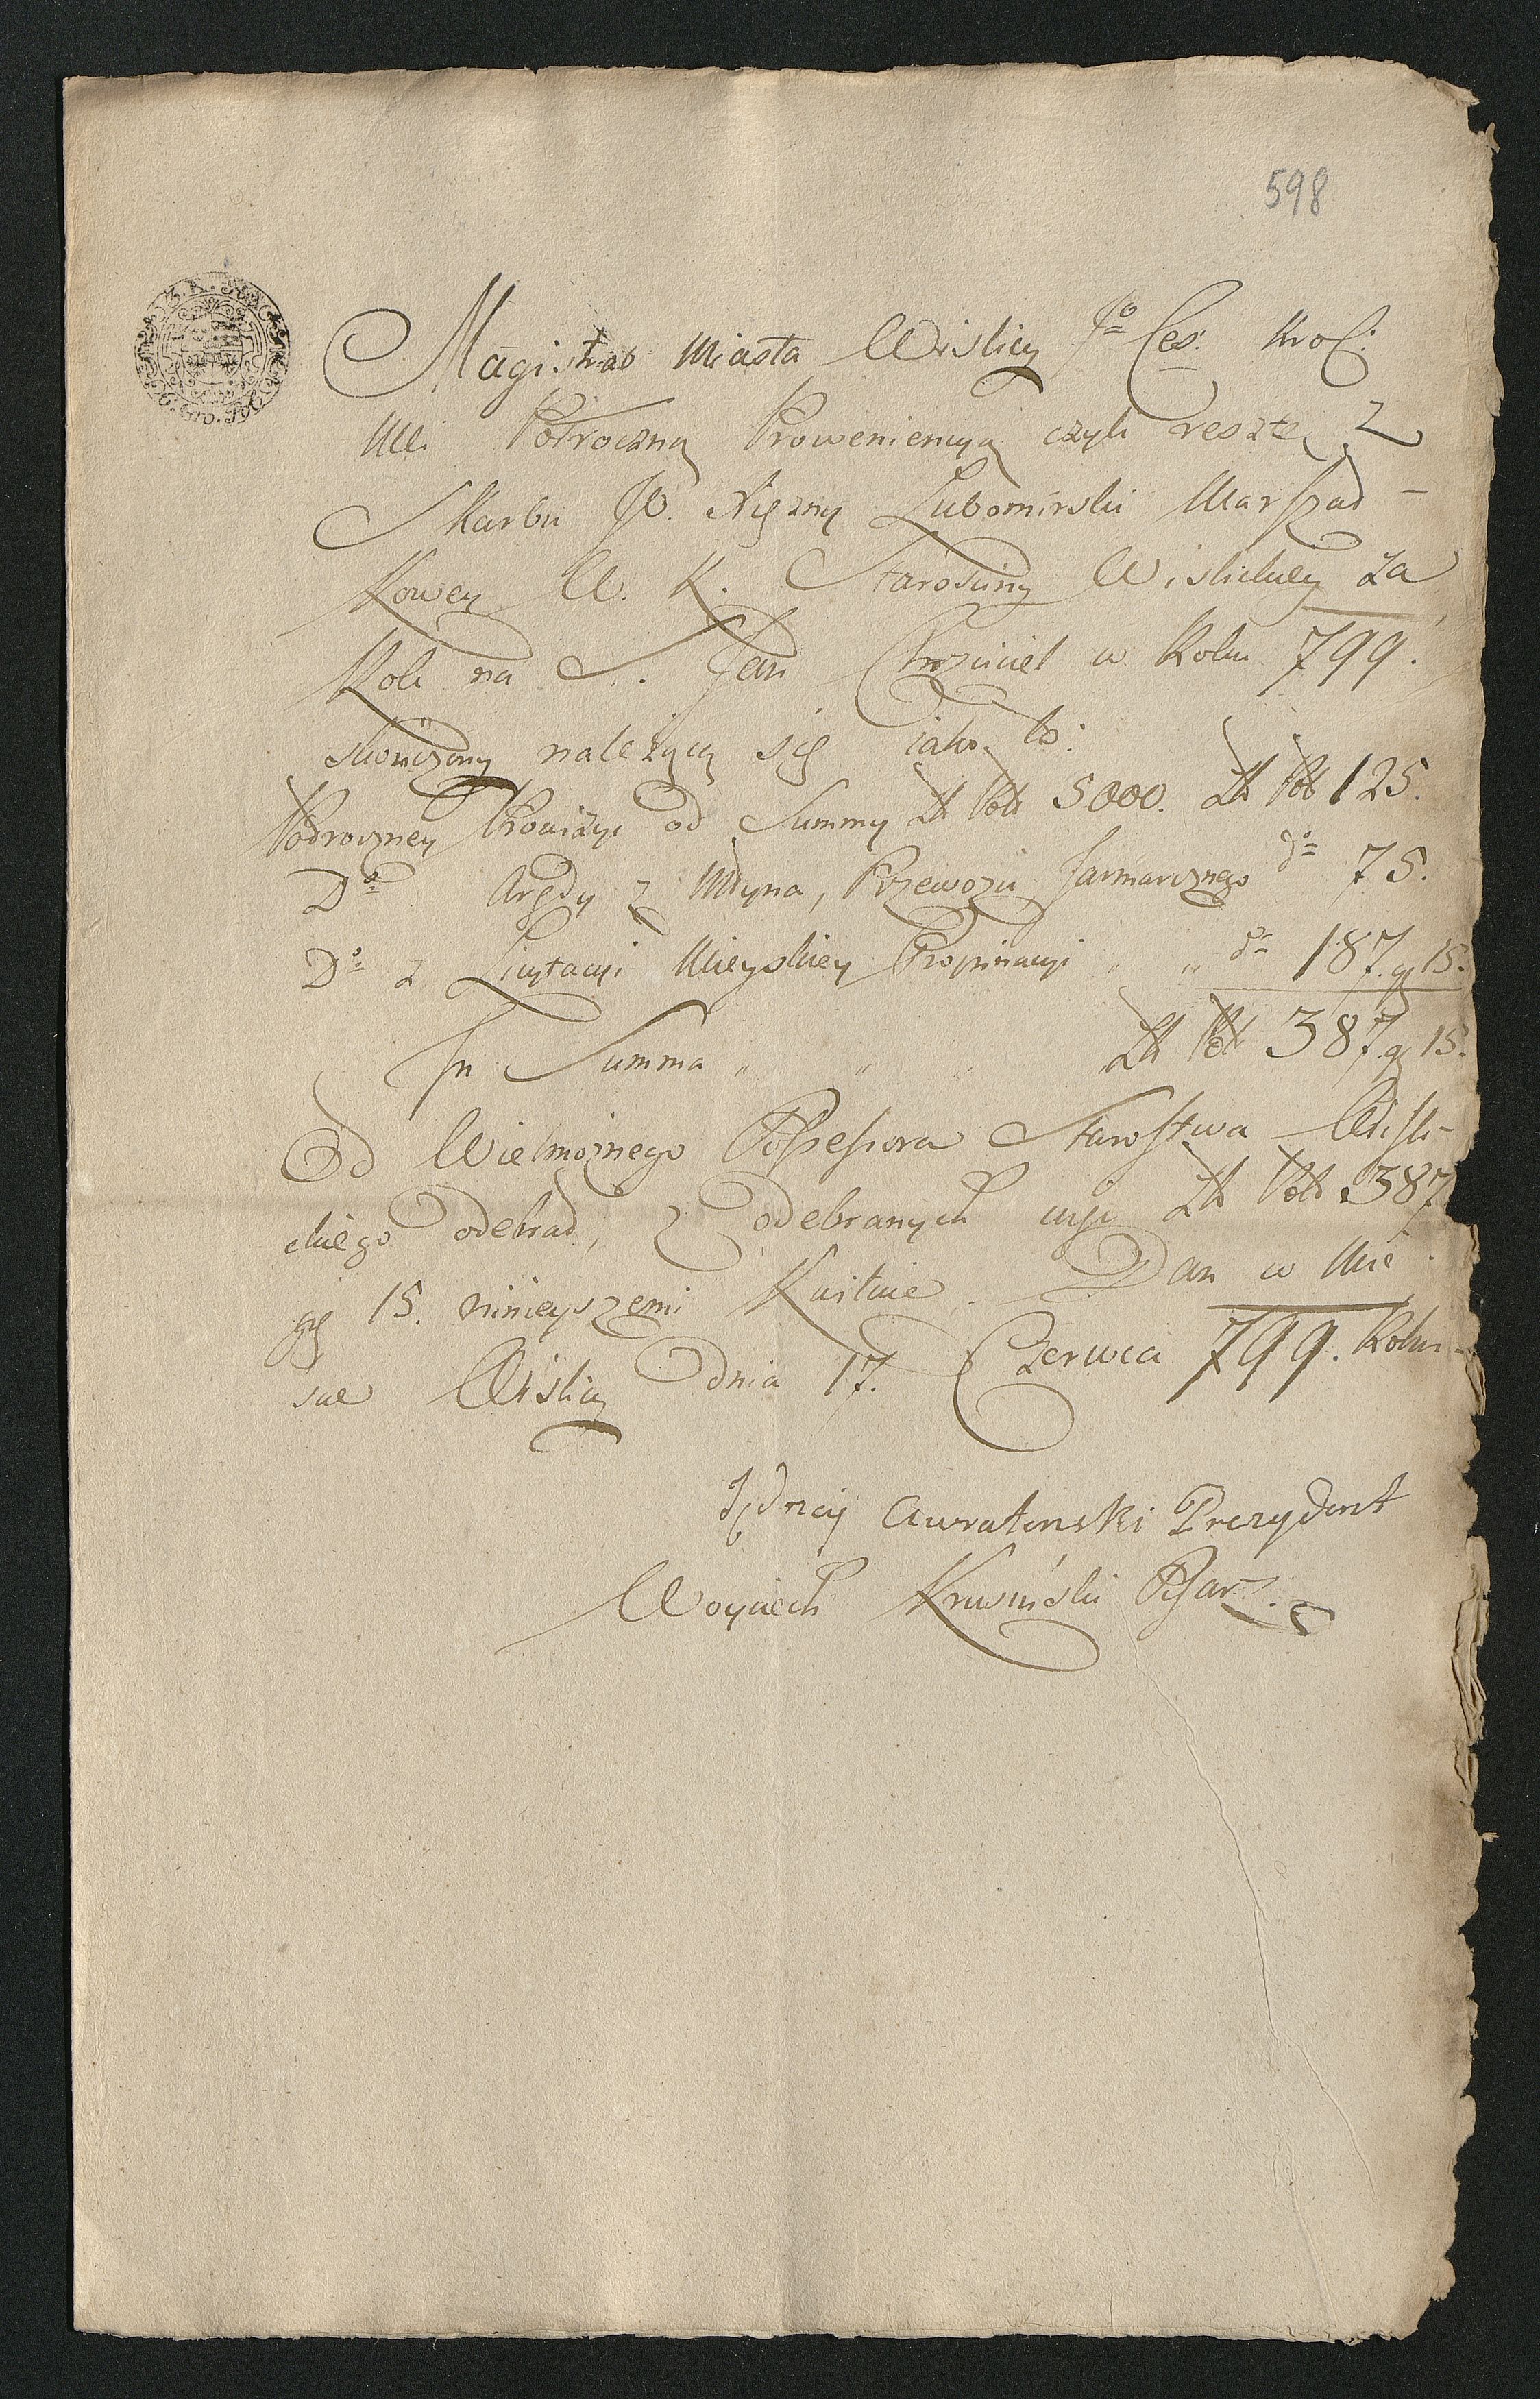 598
Magistrat Miasta Wislicy Jo Ces. Krol:
Mci Połroczną Prowenięncyą czyli resztę z
Skarbu JO. Xiężny Lubomirski Marszad-
kowey W. K. Starościny Wislickiey za
Rok na S. Jan Chrzciciel w Roku 799.
skończony należący się iako to:
Połroczney Prowizyi od Summy Zł Pol 5000. Zł Pol 125.
Do Arędy z Młyna, Przewozu Jarmarcznego do 75.
Do z Licytacyi Mieyskiey Propinacyi " " do 187. gr 15.
In Summa " " Zł Pol 387. gr 15.
Od Wielmożnego Possessora Starostwa Wisli-
ckiego odebrał, z odebranych więc Zł Pol 387
gr 15. ninieyszem Kwituie. Dan w Mie-
scie Wislicy Dnia 17. Czerwca 799. Roku
Jędrzy Awratenski Prezydent
Woyciech Krwinski Pisarz.